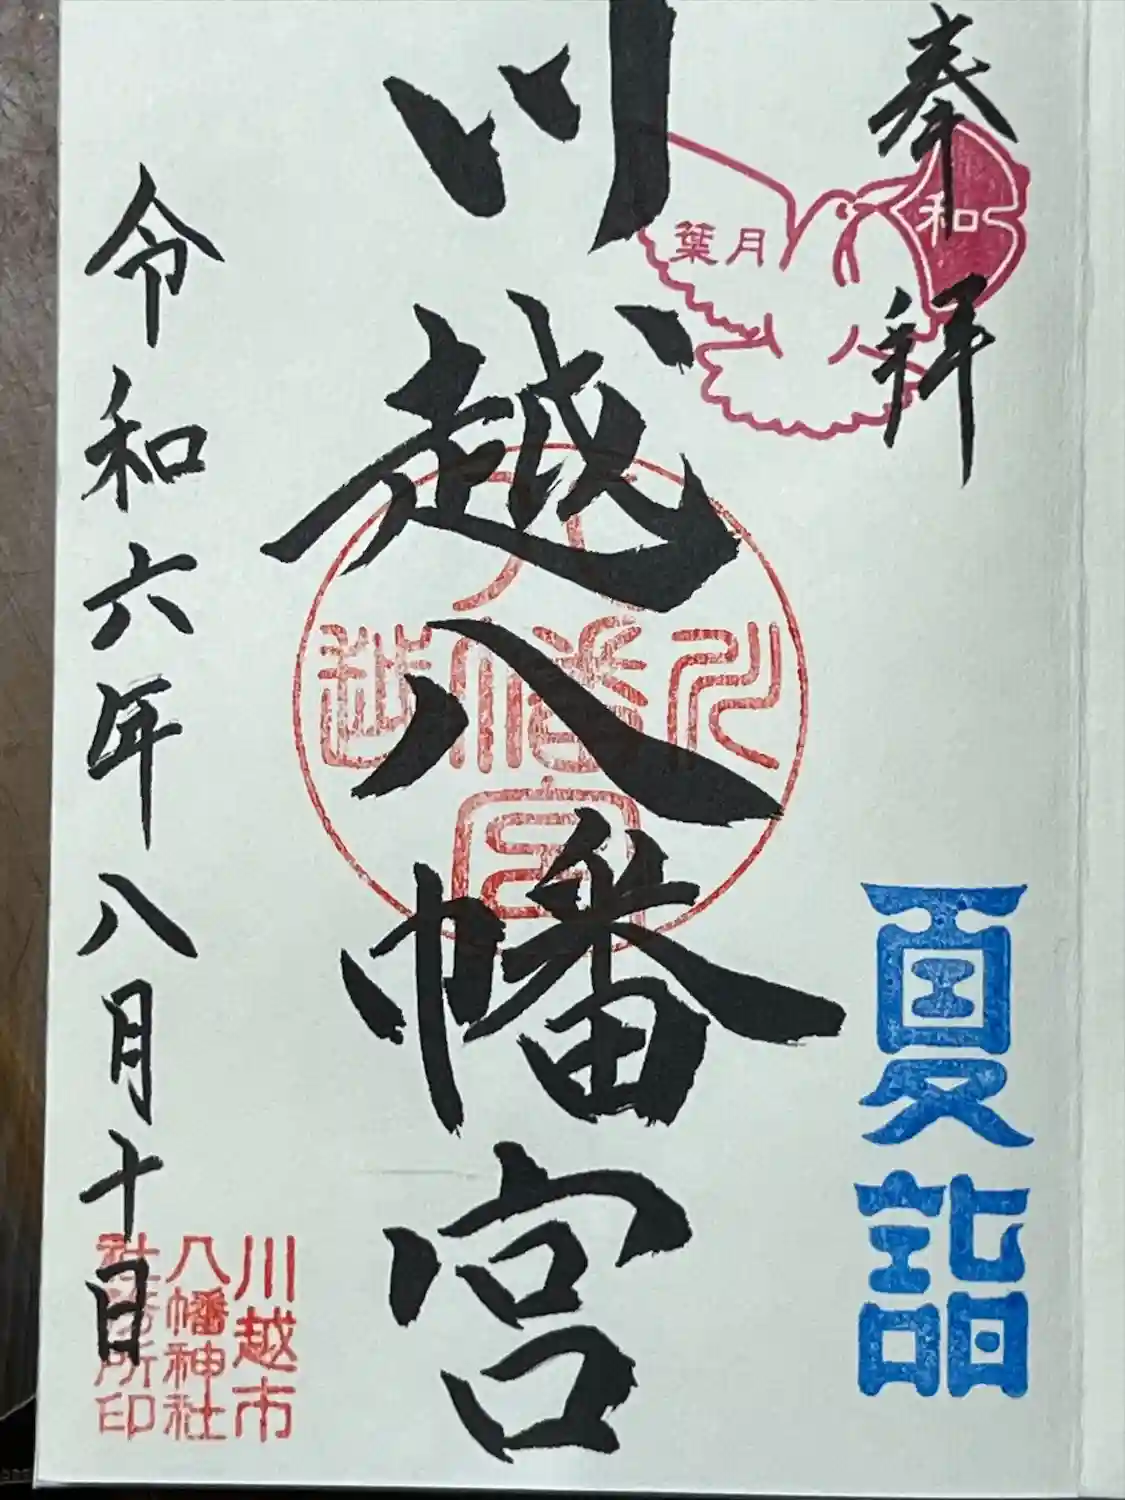 奉拝
和
月
葉
夏詣
川越八幡宮
川
八幡宮
越
令和六年八月十日
川越市
八幡神社
社務所印